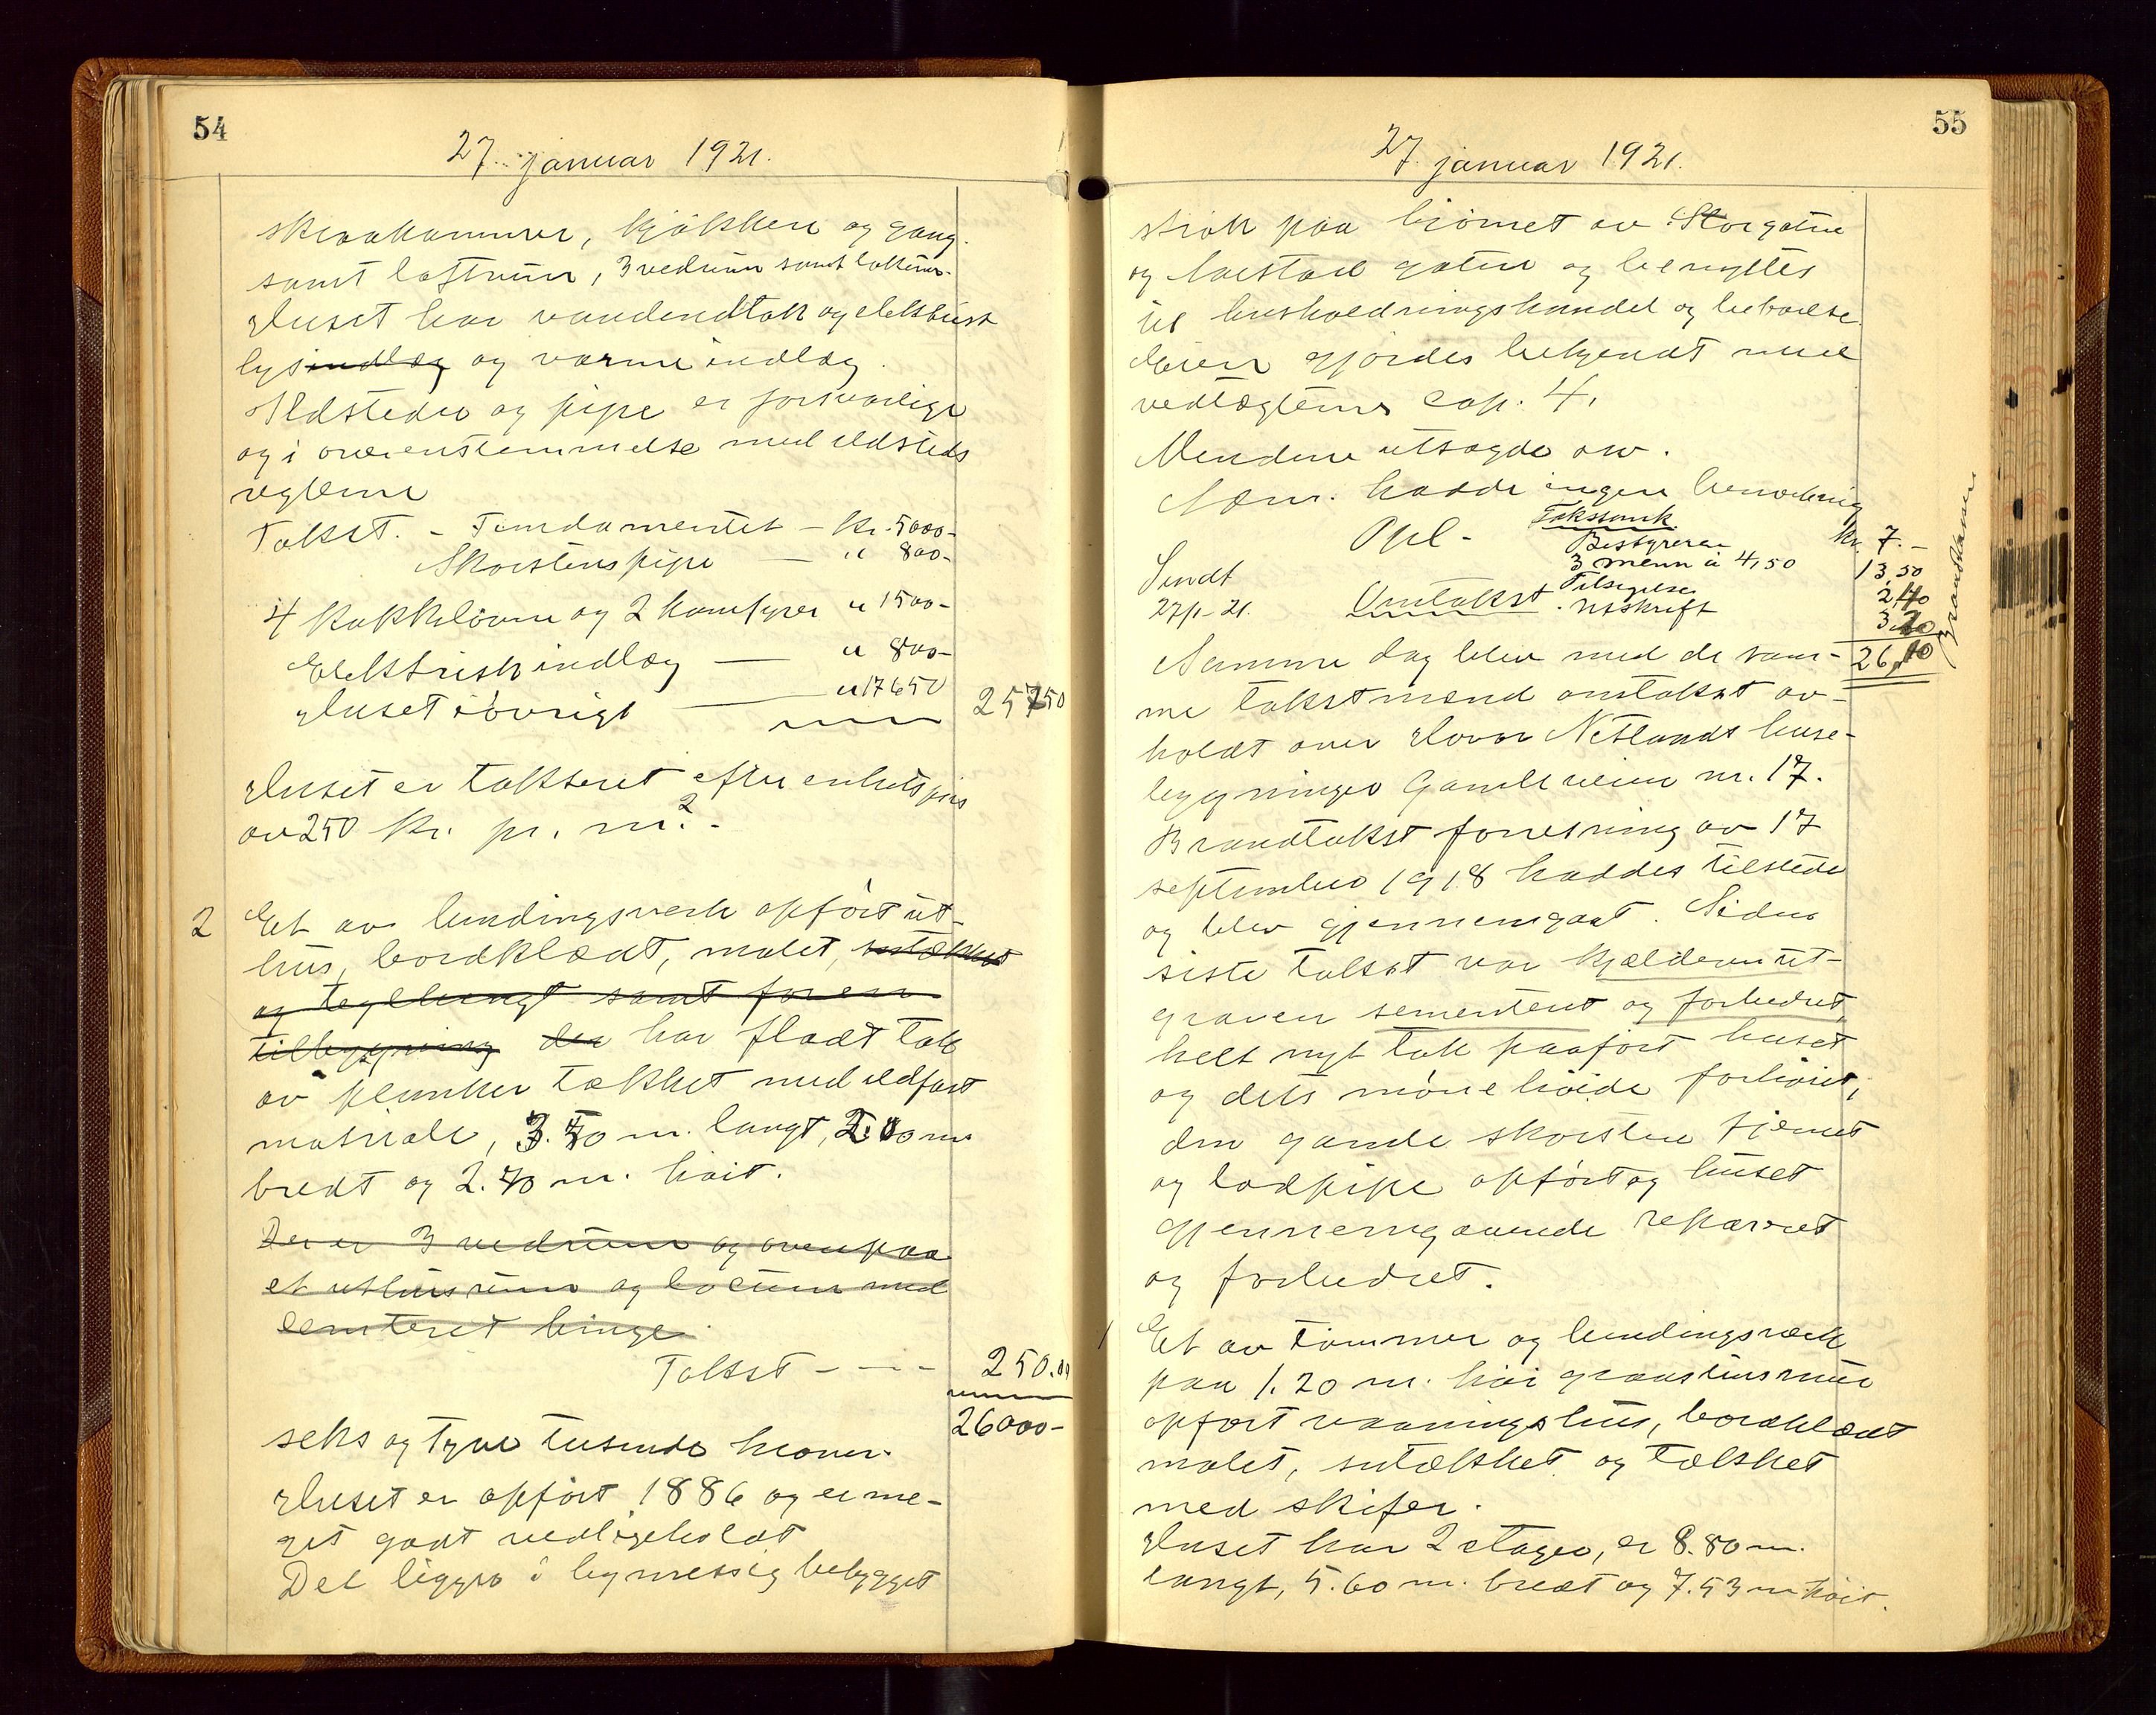 54
27. januar 1921.
skraakammer, kjøkken og gang
samt loftrum, 3 vedrum samt
Huset har vandindtak og elektrisk
lysindlæg og varmeindlæg.
Ildsteder og pipe er forsvarlige
og i overenstemmelse med ildsteds
reglerne
Takst. - Fundamentet - kr. 5000-
Skorstenspipe — " 800-
4 kakkelovne og 2 komfyrer " 1500-
Elektrisk indlæg — " 800-
Huset iøvrigt — " 17650
25750
Huset er takseret efter enhetspris
av 250 kr. pr. m.²-
2 Et av bindingsverk opført ut-
hus, bordklædt, malet, sutækket
og teglhengt samt for en
tilbygning der har fladt tak
av planker tækket med ildfast
materiale, 3.50 m. langt, 2.00 m
bredt og 2.40 m. høit.
Der er 3 vedrum og ovenpaa
et uthusrum og locum med
cemteret binge.
Takst - - - 250.00
26000-
seks og tyve tusinde kroner.
Huset er opført 1886 og er me-
get godt vedligeholdt
Det ligger i bymessig bebygget
55
27. januar 1921.
strøk paa hjørnet av Storgaten
og gaten og benyttes
til husholdningshandel og beboelse.
Eieren gjordes bekjendt med
vedtægternes cap. 4.
Mendene utsagde osv.
hadde ingen bemerkning
Opl -
Takstomk.
Bestyreren kr. 7.-
3 menn à 4,50 13,50
Tilsigelse 2,40
Utskrift 3,20
26,10
Sendt
27/1-21.
Omtakst.
Samme dag blev med de sam-
me takstmænd omtakst av-
holdt over Hovar Netlands huse-
bygninger Gamleveien nr. 17.
Brandtakst forretning av 17
september 1918 haddes tilstede
og blev gjennemgaat. Siden
siste takst var kjælderen ut-
graven sementeret og forbedret,
helt nyt tak paaført huset
og dets mønehøide forhøiet,
den gamle skorsten fjernet
og lodpipe opført og huset
gjennemgaaende reparret
og forbedret.
1 Et av tømmer og bindingsverk
paa 1.20 m. høi graastensmur
opført vaaningshus, bordklædt
malet, sutækket og tækket
med skifer.
Huset har 2 etager, er 8.80 m.
langt, 5.60 m. bredt og 7.53 m høit.